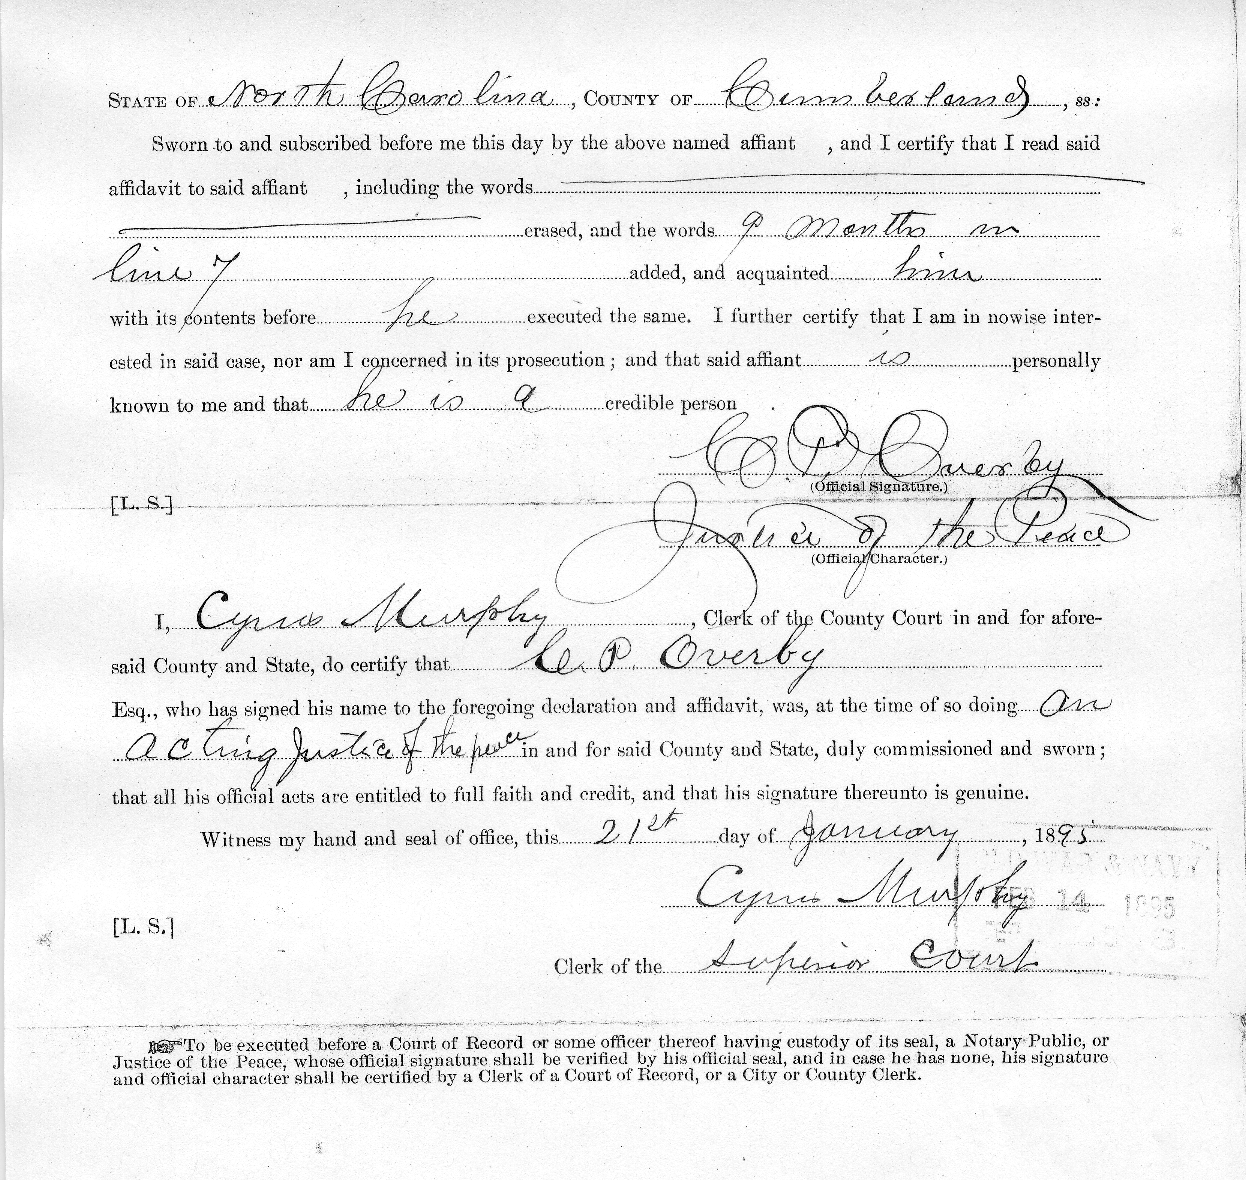 STATE OF North Carolina, COUNTY OF Cumberland, ss:
Sworn to and subscribed before me this day by the above named affiant , and I certify that I read said
affidavit to said affiant , including the words
erased, and the words 9 months in
line 7 added, and acquainted him
with its contents before he executed the same. I further certify that I am in nowise inter-
ested in said case, nor am I concerned in its prosecution; and that said affiant is personally
known to me and that he is a credible person .
C P Overby
(Official Signature.)
[L. S.]
Justice of the Peace
(Official Character.)
I, Cyrus Murphy, Clerk of the County Court in and for afore-
said County and State, do certify that C. P. Overby
Esq., who has signed his name to the foregoing declaration and affidavit, was, at the time of so doing an
acting Justice of the peace in and for said County and State, duly commissioned and sworn;
that all his official acts are entitled to full faith and credit, and that his signature thereunto is genuine.
Witness my hand and seal of office, this 21st day of January, 1895
Cyrus Murphy
FEB 14 1895
[L. S.]
Clerk of the Superior Court
To be executed before a Court of Record or some officer thereof having custody of its seal, a Notary Public, or
Justice of the Peace, whose official signature shall be verified by his official seal, and in case he has none, his signature
and official character shall be certified by a Clerk of a Court of Record, or a City or County Clerk.